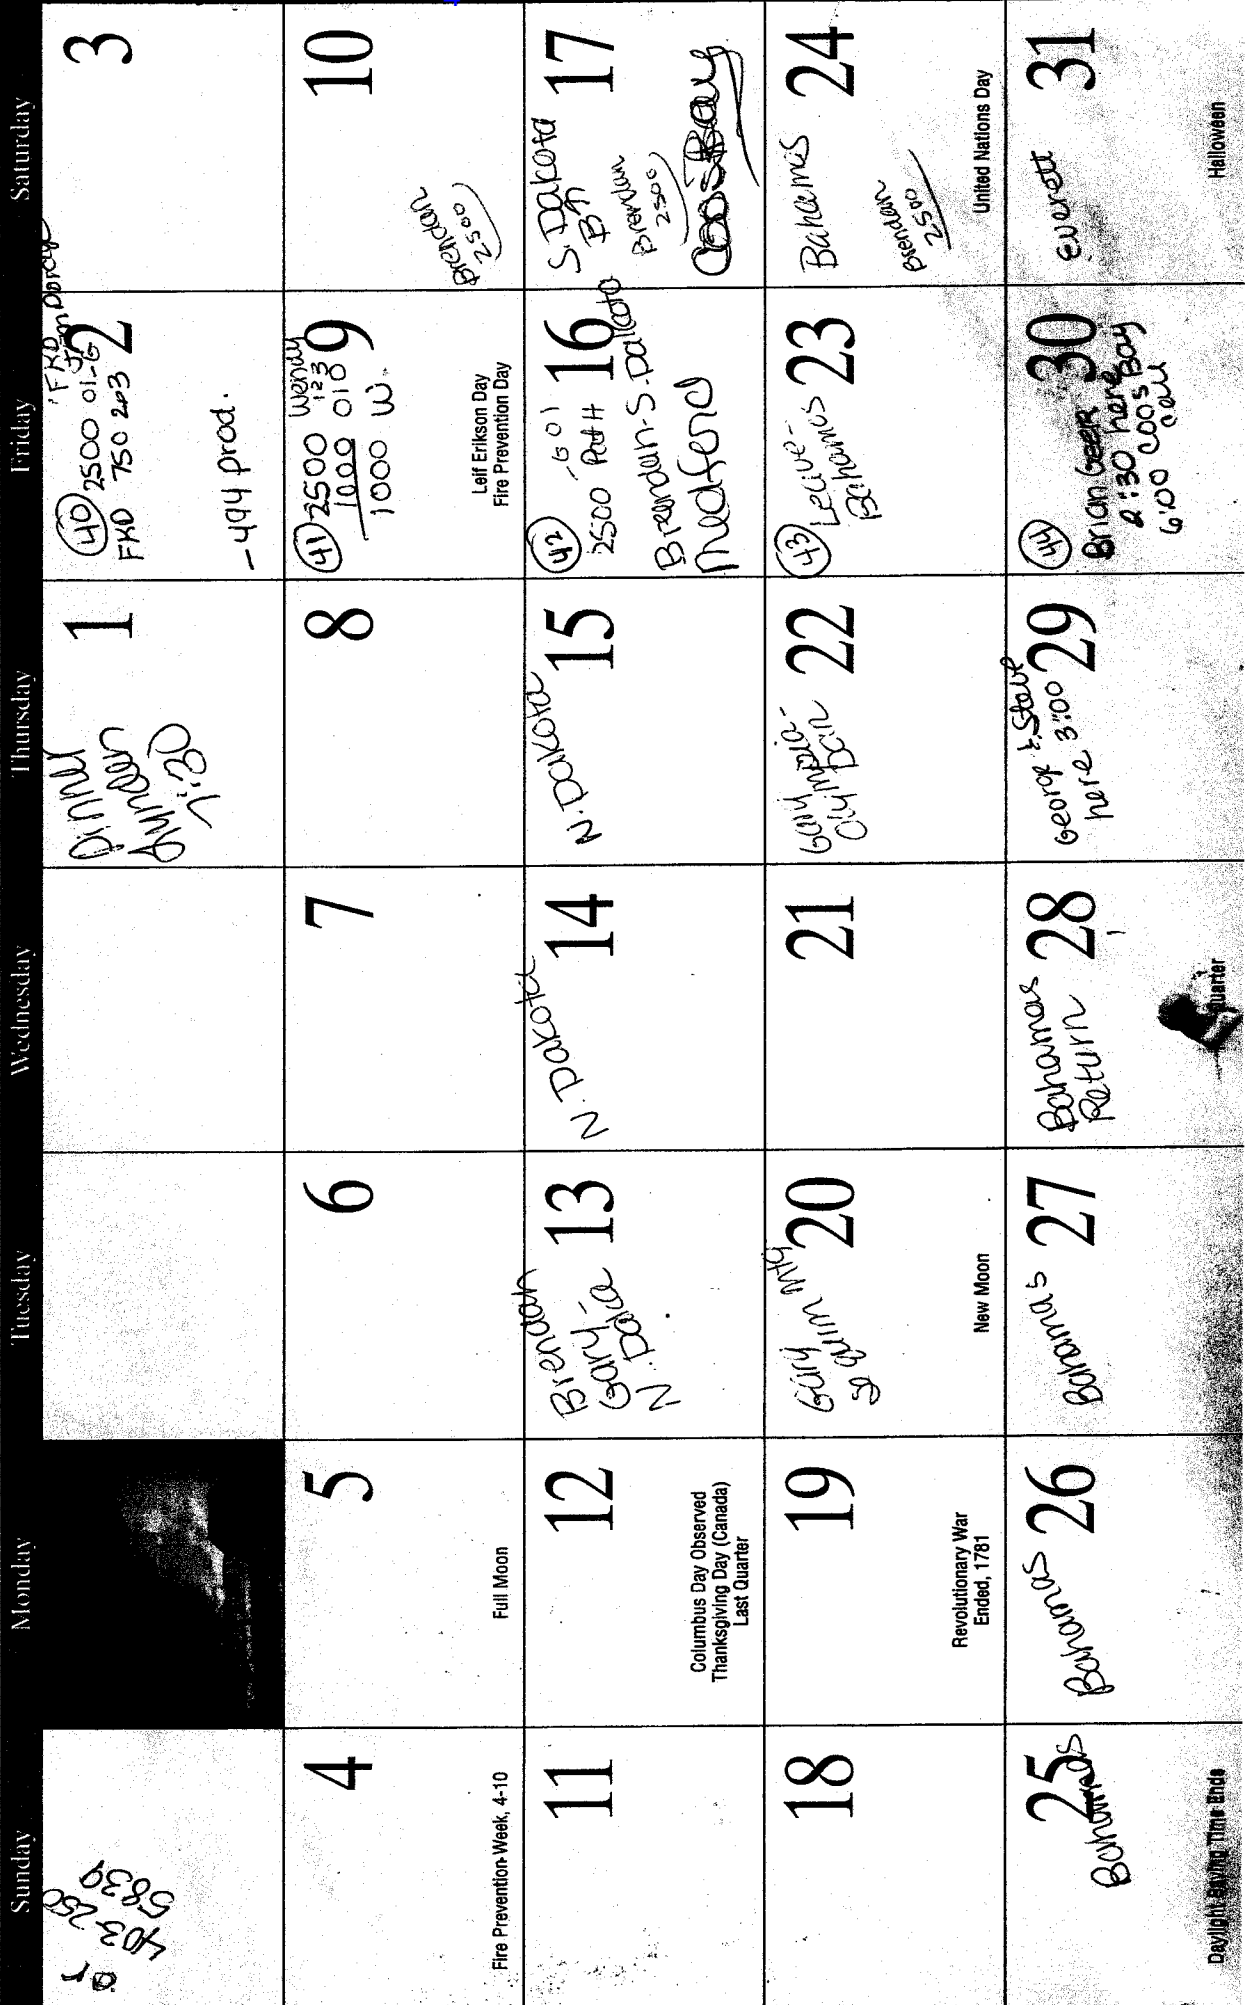 Sunday Monday Tuesday Wednesday Thursday Friday Saturday
or
403-250
5839
1
Dinner
7:30
2
FKD
(40) 2500 01-G
FKD 750 203
-494 prod.
3
4
Fire Prevention Week, 4-10
5
Full Moon
6
7
8
9
Wendy
(41) 2500 123
1000 010
1000 W.
Leif Erikson Day
Fire Prevention Day
10
Brendan
2500
11
12
Columbus Day Observed
Thanksgiving Day (Canada)
Last Quarter
13
Brendan
Gary-
N. Dakota
14
N. Dakota
15
N. Dakota
16
(42)
2500 Patt H -G 01
Brendan-S. Dakota
Medford
17
S Dakota
Brendan
2500
Coos Bay
18
19
Revolutionary War
Ended, 1781
20
Gary
mtg
New Moon
21
22
Gary
Olympia-
23
(43) Leave-
Bahamas
24
Bahamas
Brendan
2500
United Nations Day
25
Bahamas
Daylight Saving Time Ends
26
Bahamas
27
Bahamas
28
Bahamas
Return
Quarter
29
George & Steve
here 3:00
30
(44)
Brian Geer
2:30 here
6:00 Coos Bay
31
Everett
Halloween